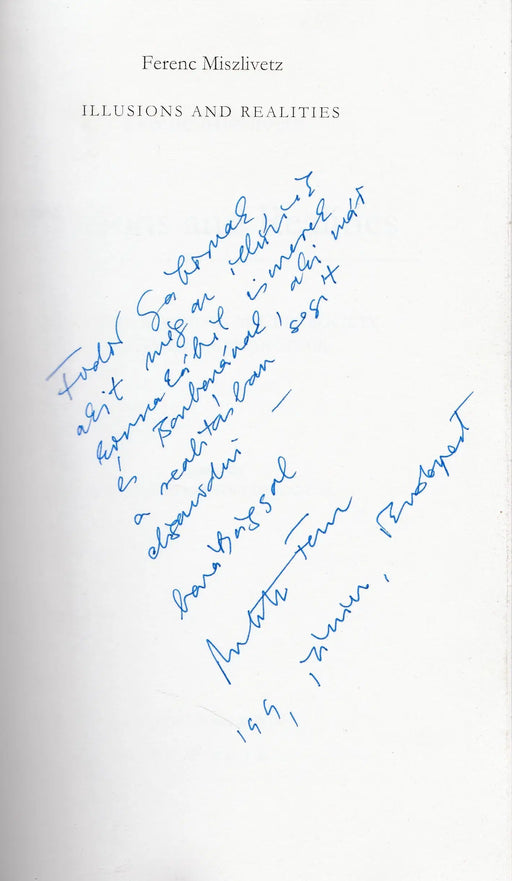 Ferenc Miszlivetz
ILLUSIONS AND REALITIES
Fodor Gábornak
akit még az illúziók
korszakából ismerek
és Borbárának, aki már
a realitásban segít
eligazodni —
barátsággal
Miszlivetz Ferenc
1991, június, Budapest